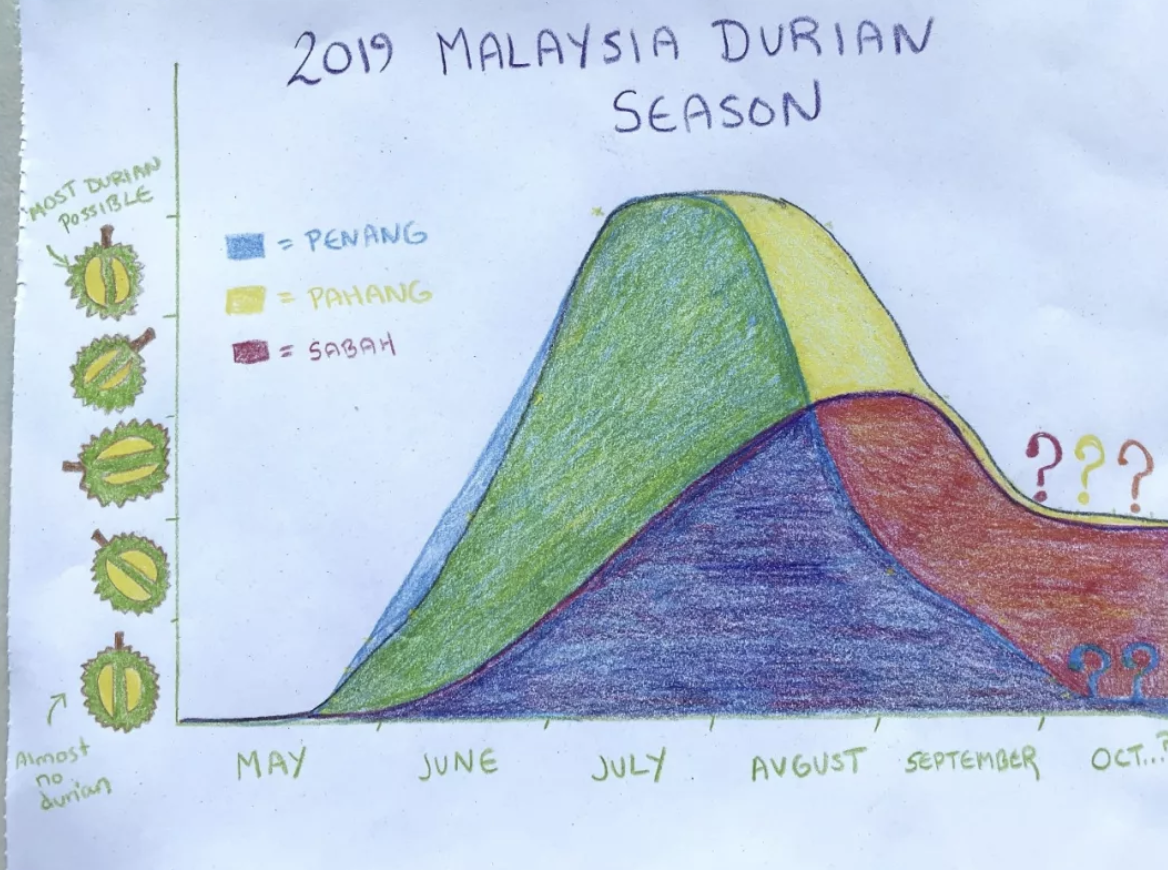 2019 MALAYSIA DURIAN
SEASON
MOST DURIAN
POSSIBLE
= PENANG
= PAHANG
= SABAH
? ? ?
? ?
Almost
no
durian
MAY JUNE JULY AUGUST SEPTEMBER OCT...?